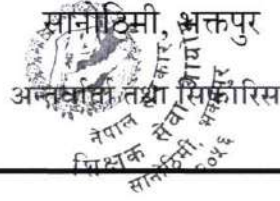 सानोठिमी, भक्तपुर
अन्तर्वार्ता तथा सिफारिस
नेपाल सरकार
शिक्षक सेवा आयोग
सानोठिमी, भक्तपुर
२०५६